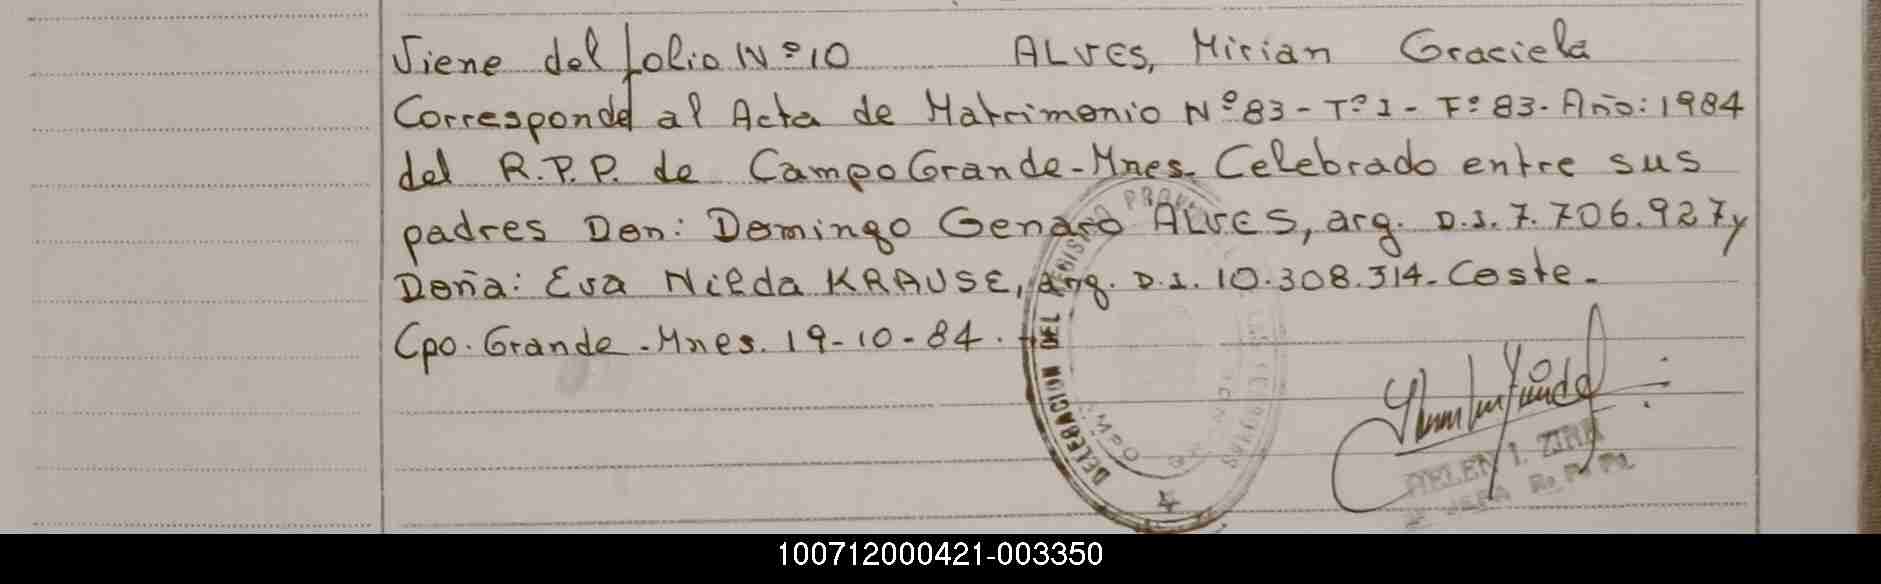 Viene del folio Nº 10 ALVES, Mirian Graciela
Corresponde al Acta de Matrimonio Nº 83 - Tº 1 - Fº 83 - Año: 1984
del R.P.P. de Campo Grande - Mnes. Celebrado entre sus
padres Don: Domingo Genaro ALVES, arg. D.I. 7.706.927 y
Doña: Eva Nilda KRAUSE, arg. D.I. 10.308.314. Coste.
Cpo. Grande - Mnes. 19-10-84.
DELEGACION DEL
100712000421-003350